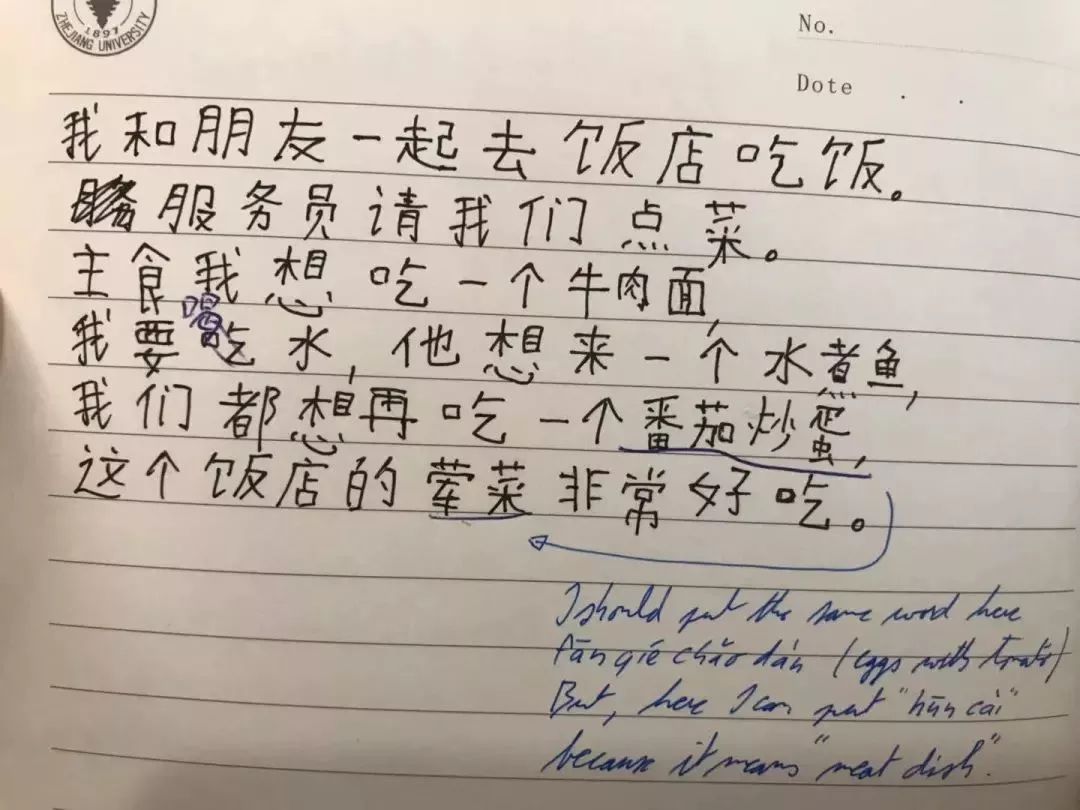 1897
ZHEJIANG UNIVERSITY
No.
Dote . .
我和朋友一起去饭店吃饭。
服务员请我们点菜。
主食我想吃一个牛肉面,
我要喝吃水,他想来一个水煮鱼,
我们都想再吃一个番茄炒蛋,
这个饭店的荤菜非常好吃。
I should put the same word here
Fān qié chǎo dán (eggs with
But, here I can put "hūn cài"
because it means "meat dish".